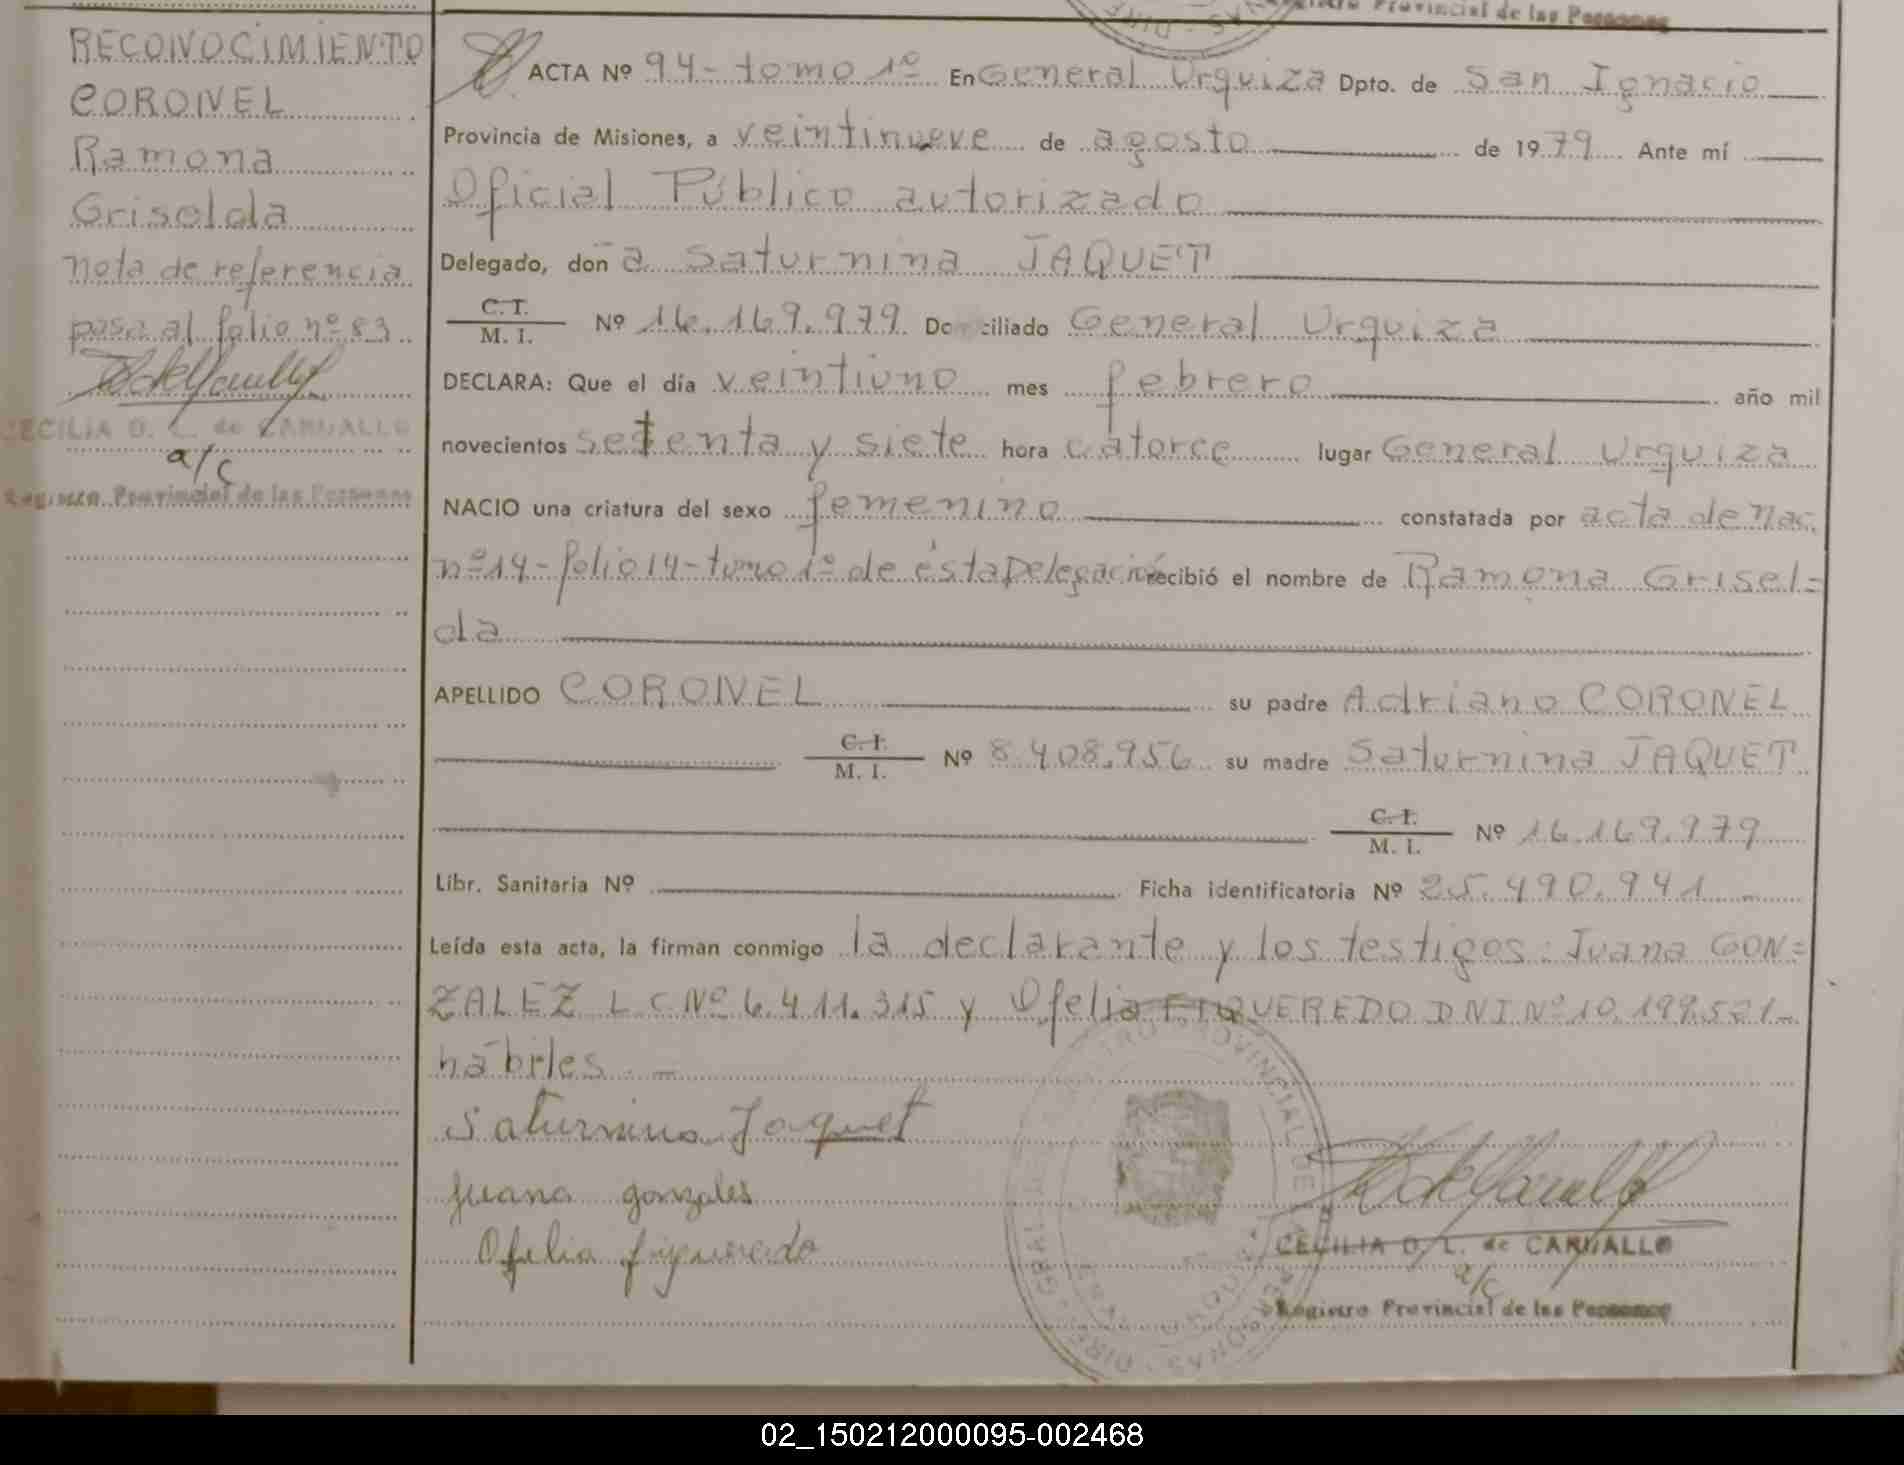 RECONOCIMIENTO
CORONEL
Ramona
Griselda
nota de referencia
pasa al folio nº 83
CECILIA O. L. de CARVALLO
a/c
Registro Provincial de las Personas
Registro Provincial de las Personas
ACTA Nº 94- tomo 1º En General Urquiza Dpto. de San Ignacio
Provincia de Misiones, a veintinueve de agosto de 1979 Ante mí
Oficial Público autorizado
Delegado, doña Saturnina JAQUET
C. I.
M. I. Nº 16.169.979 Domiciliado General Urquiza
DECLARA: Que el día veintiuno mes febrero año mil
novecientos setenta y siete hora catorce lugar General Urquiza
NACIO una criatura del sexo femenino constatada por acta de nac.
nº 14- folio 14- tomo 1º de ésta Delegación recibió el nombre de Ramona Grisel=
da
APELLIDO CORONEL su padre Adriano CORONEL
C. I.
M. I. Nº 8.408.956 su madre Saturnina JAQUET
C. I.
M. I. Nº 16.169.979
Libr. Sanitaria Nº Ficha identificatoria Nº 25.490.941
Leída esta acta, la firman conmigo la declarante y los testigos: Juana GON=
ZALEZ L C Nº 6.411.315 y Ofelia FIGUEREDO DNI Nº 10.199.521-
hábiles. -
Saturnina Jaquet
Juana gonzales
Ofelia figueredo
CECILIA O. L. de CARVALLO
a/c
Registro Provincial de las Personas
02_150212000095-002468